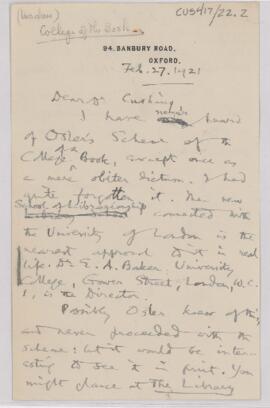 (Madan)
CUS417/22.2
College of the Book
94. BANBURY ROAD,
OXFORD.
Feb. 27. 1921
Dear Dr Cushing
I have never heard
of Osler's Scheme of the
College of a Book, except once as
a mere obiter dictum. I had
quite forgotten it. The new
School of Librarianship connected with
the University of London is the
nearest approach to it in real
life. Dr. E. A. Baker, University
College, Gower Street, London, W.C.
1, is the Director.
Possibly Osler knew of this,
and never proceeded with the
scheme: but it would be inter-
esting to see it in print. You
might glance at The Library